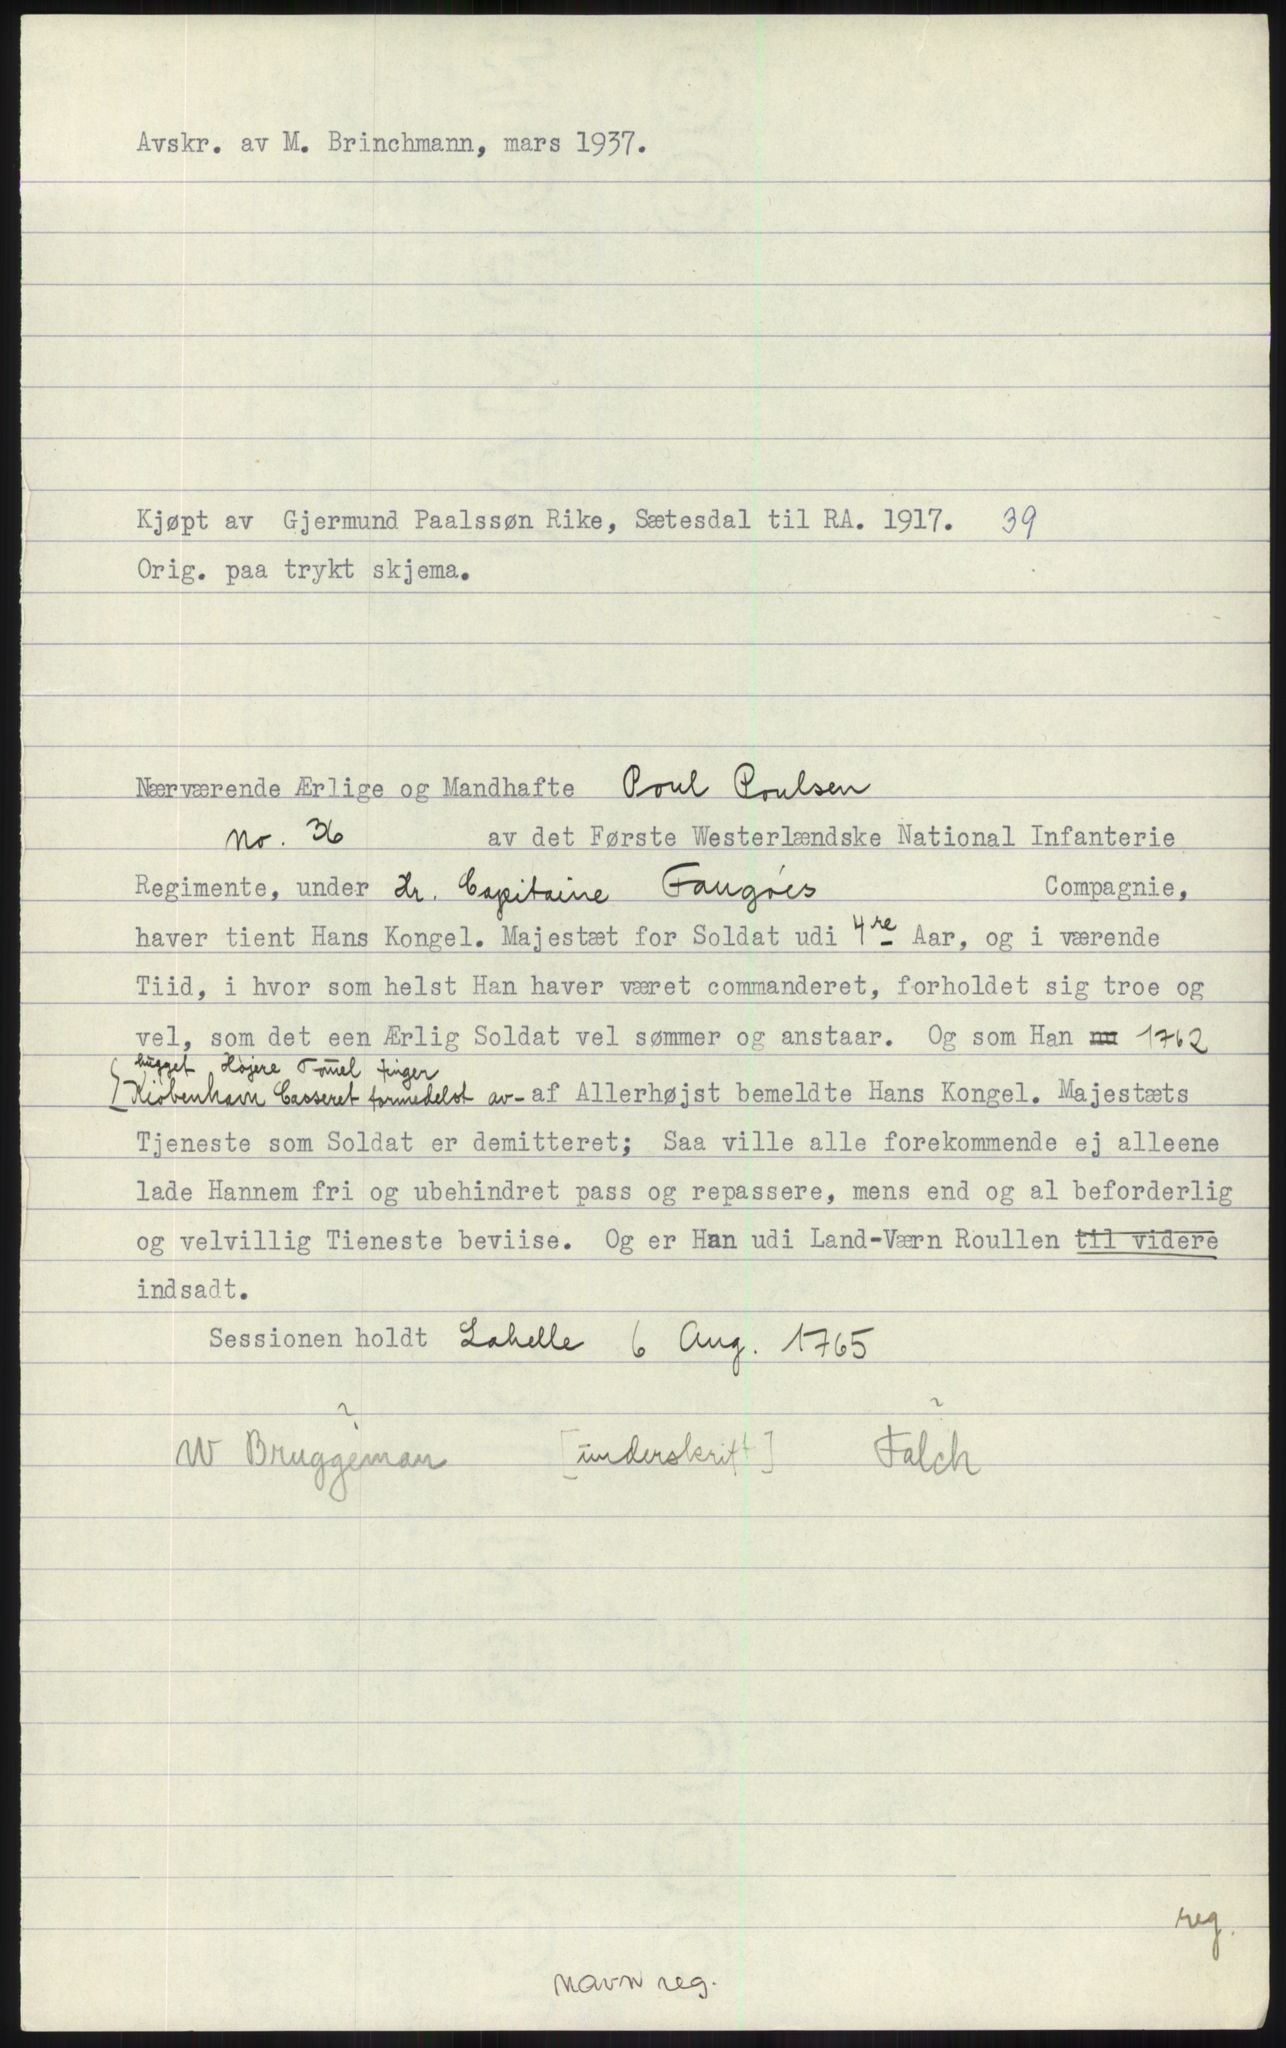 Avskr. av M. Brinchmann, mars 1937.
Kjøpt av Gjermund Paalssøn Rike, Sætesdal til RA. 1917. 39
Orig. paa trykt skjema.
Nærværende Ærlige og Mandhafte Poul Poulsen
No. 36 av det Første Westerlændske National Infanterie
Regimente, under Hr. Capitaine Compagnie,
haver tient Hans Kongel. Majestæt for Soldat udi 4re Aar, og i værende
Tiid, i hvor som helst Han haver været commanderet, forholdet sig troe og
vel, som det een Ærlig Soldat vel sømmer og anstaar. Og som Han nu 1762
hugget Højere Tomel finger
Kiøbenhavn Casseret formedelst av- af Allerhøjst bemeldte Hans Kongel. Majestæts
Tjeneste som Soldat er demitteret; Saa ville alle forekommende ej alleene
lade Hannem fri og ubehindret pass og repassere, mens end og al beforderlig
og velvillig Tieneste beviise. Og er Han udi Land-Værn Roullen til videre
indsadt.
Sessionen holdt Lahelle 6 Aug. 1765
? ?
W Bruggeman [underskrift] Falch
reg.
navn reg.